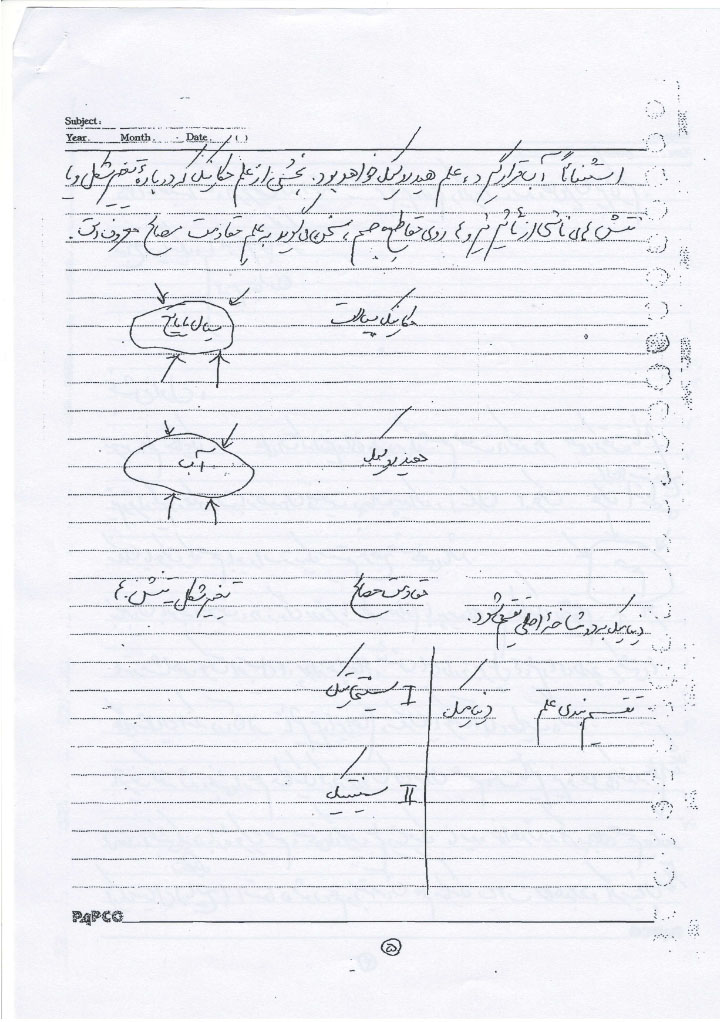 Subject:
Year. Month. Date. ( )
استثنائاً آب قرار گیرد، علم هیدرولیک خواهد بود. بخشی از علم مکانیک که درباره تغییر شکل و یا
تنش های ناشی از تأثیر نیروها روی مقاطع جسم، سخن می گوید به علم مقاومت مصالح معروف است.
مکانیک سیالات
سیال یا مایع
هیدرولیک
آب
مقاومت مصالح
تغییر شکل تنش ها
دینامیک به دو شاخه اصلی تقسیم می شود.
تقسیم بندی علم دینامیک
I سینماتیک
II سینتیک
PAPCO
۵